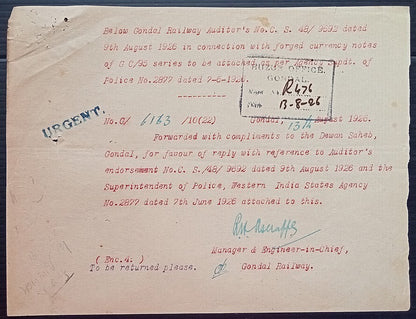 Below Gondal Railway Auditor's No.C. S. 48/ 9692 dated
9th August 1926 in connection with forged currency notes
of G C/95 series to be attached as per Agency Supdt. of
Police No.2877 dated 7-6-1926.
HUZUR OFFICE.
GONDAL.
R476
13-8-26
URGENT.
No.C/ 6163 /16(22) Gondal, 13th August 1926.
Forwarded with compliments to the Dewan Saheb,
Gondal, for favour of reply with reference to Auditor's
endorsement No.C. S./48/ 9692 dated 9th August 1926 and the
Superintendent of Police, Western India States Agency
No.2877 dated 7th June 1926 attached to this.
Manager & Engineer-in-Chief,
(Enc.4. )
To be returned please. Gondal Railway.